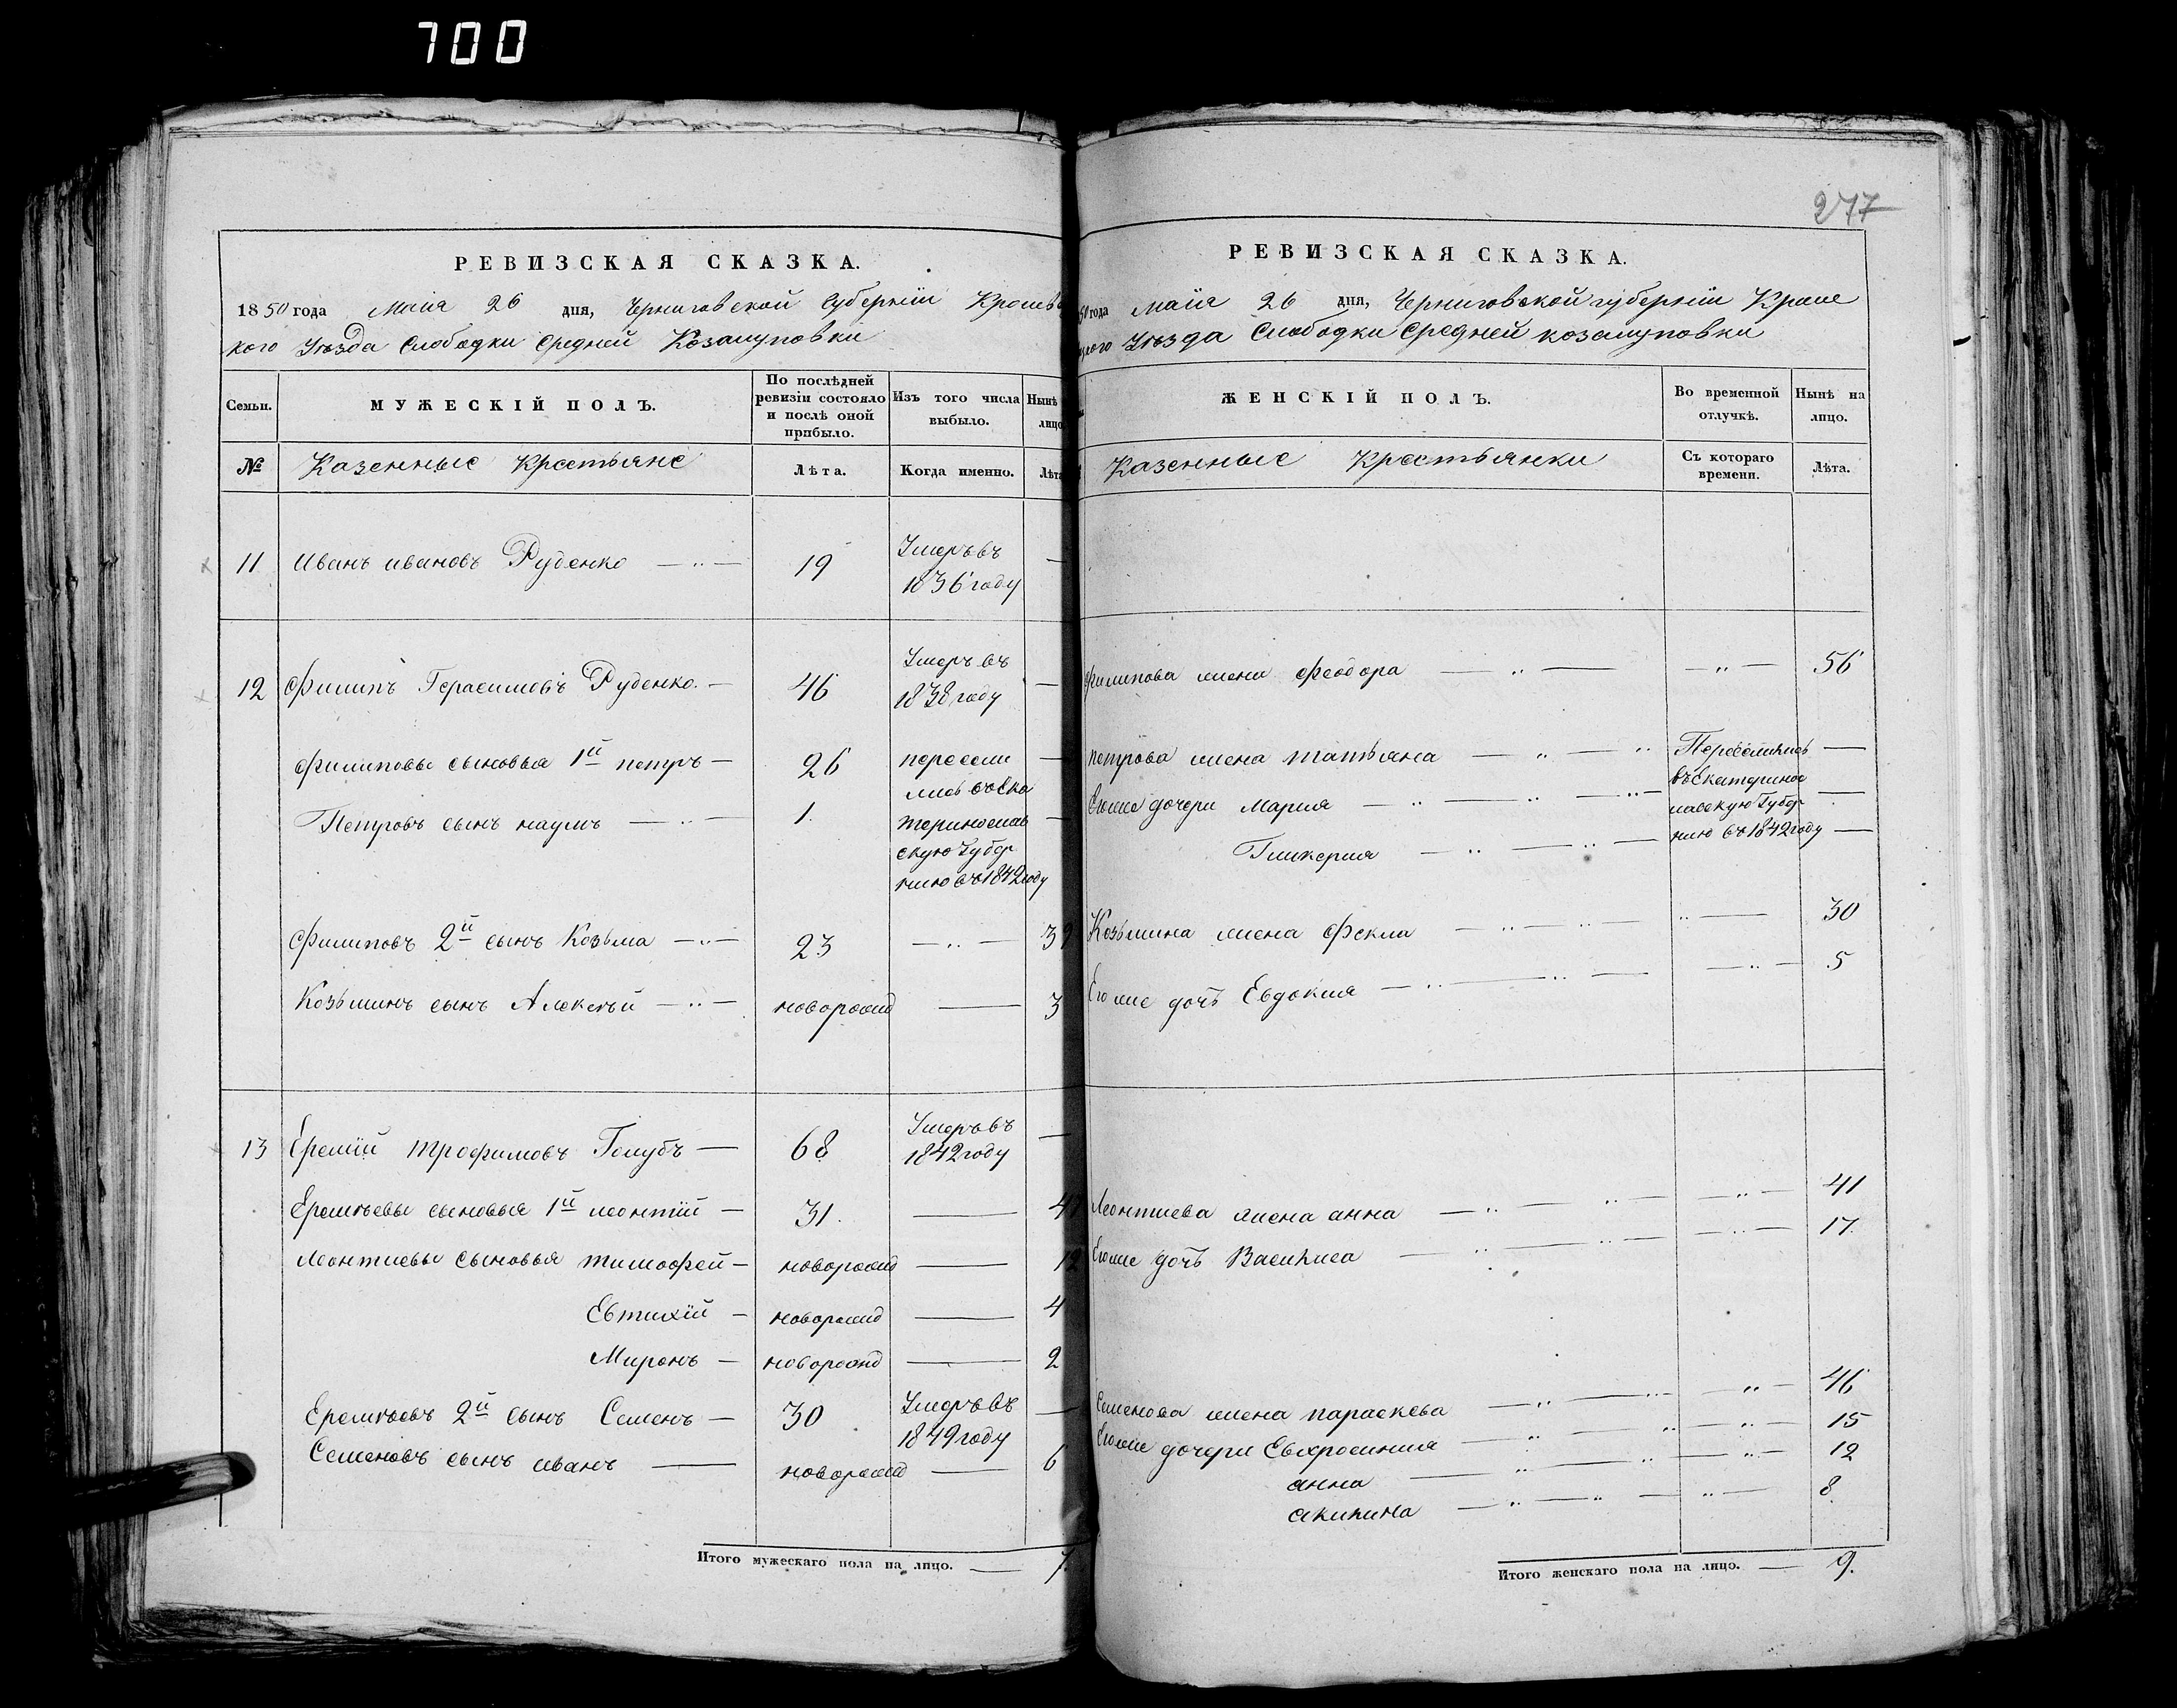 700
РЕВИЗСКАЯ СКАЗКА.
1850 года Маія 26 дня, Черниговской Губерніи Кролеве
кого Уѣзда Слободки Средней Козацуповки
Семьи. МУЖЕСКІЙ ПОЛЪ. По послѣдней ревизіи состояло и послѣ оной прибыло. Изъ того числа выбыло. Нынѣ лицо
№ Казенные Крестьяне Лѣта. Когда именно. Лѣта
11 Иванъ ивановъ Руденко 19 Умеръ въ
1836 году
12 Филипъ Герасимовъ Руденко 46 Умеръ въ
1838 году
Филиповы сыновья 1й петръ 26 пересели
Петровъ сынъ наумъ 1. лись въ Ека
теринослав
скую Губер
нию въ 1842 году
Филиповъ 2й сынъ Козьма 23 39
Козьминъ сынъ Алексѣй новорожд 3
13 Еремій трофимовъ Голубъ 68 Умеръ въ
1842 году
Еремѣевы сыновья 1й леонтій 31. 47
Леонтиевы сыновья тимофей новорожд 12
Евтихій новорожд 4
Миронъ новорожд 2
Еремѣевъ 2й сынъ Семенъ 30 Умеръ въ
1849 году
Семеновъ сынъ иванъ новорожд 6
Итого мужескаго пола на лицо. 7.
277
РЕВИЗСКАЯ СКАЗКА.
50 года маія 26 дня, Черниговской губерніи Кроле
вецкого Уѣзда Слободки Средней козацуповки
ЖЕНСКІЙ ПОЛЪ. Во временной отлучкѣ. Нынѣ на лицо.
Казенные Крестьянки Съ котораго времени. Лѣта.
Филипова жена Феодора 56
Петрова жена татьяна Переселились
Егоже дочери Мария въ Екатеринос
Гликерия лавскую Губер
нию въ 1842 году
Козьмина жена Фекла 30
Егоже дочь Евдокия 5
Леонтиева жена анна 41
Егоже дочь Василиса 17.
Семенова жена параскева 46
Егоже дочери Евхросиния 15
анна 12
акилина 8.
Итого женскаго пола на лицо. 9.